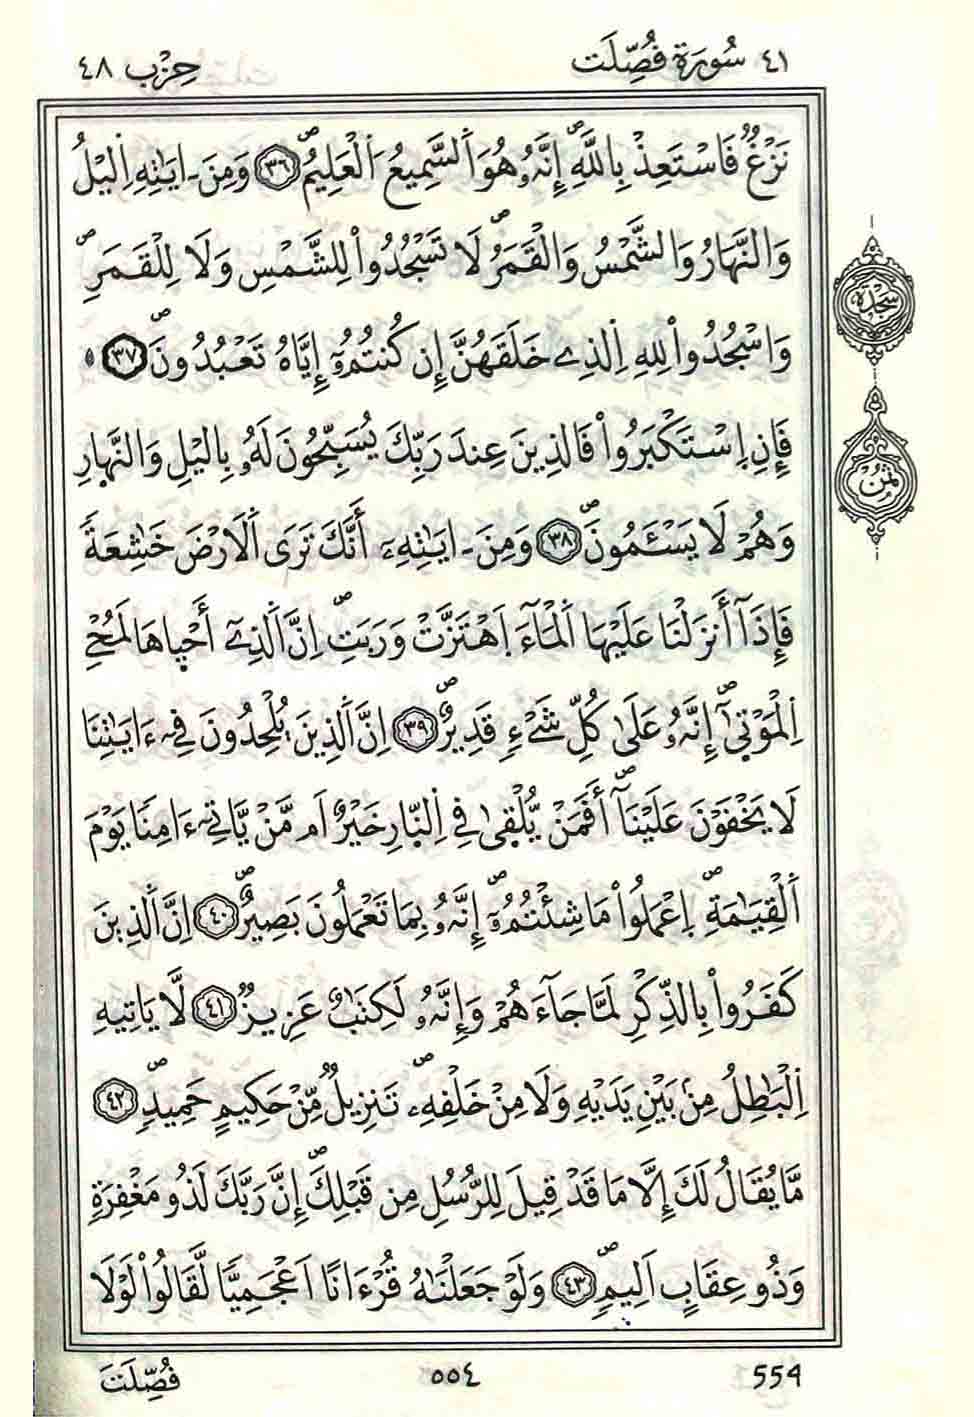 ٤١ سُورَةُ فُصِّلَتْ حِزْب ٤٨
نَزْغٌ فَاسْتَعِذْ بِاللَّهِ إِنَّهُ هُوَ اَلسَّمِيعُ اُلْعَلِيمُ ٣٦ وَمِنَ ـ ايَٰتِهِ اِليْلُ
وَالنَّهَارُ وَالشَّمْسُ وَالْقَمَرُ لَا تَسْجُدُواْ لِلشَّمْسِ وَلَا لِلْقَمَرِ
وَاسْجُدُواْ لِلهِ اِلذِے خَلَقَهُنَّ إِن كُنتُمُۥٓ إِيَّاهُ تَعْبُدُونَ ٣٧
سَجْدَة
فَإِنِ اِسْتَكْبَرُواْ فَالذِينَ عِندَ رَبِّكَ يُسَبِّحُونَ لَهُۥ بِاليْلِ وَالنَّهِارِ
ثُمُن
وَهُمْ لَا يَسْـَٔمُونَ ٣٨ وَمِنَ ـ ايَٰتِهِۦٓ أَنَّكَ تَرَى اَلَارْضَ خَٰشِعَةً
فَإِذَآ أَنزَلْنَا عَلَيْهَا اَلْمَآءَ اَهْتَزَّتْ وَرَبَتِ اِنَّ اَلذِےٓ أَحْيِاهَا لَمُحْيِ
اِلْمَوْتِىٰٓ إِنَّهُۥ عَلَىٰ كُلِّ شَےْءٍ قَدِيرٌ ٣٩ اِنَّ اَلذِينَ يُلْحِدُونَ فِےٓ ءَايَٰتِنَا
لَا يَخْفَوْنَ عَلَيْنَآ أَفَمَنْ يُّلْقِىٰ فِے اِلنّ۪ارِ خَيْرٌ اَم مَّنْ يَّاتِےٓ ءَامِناً يَوْمَ
اَلْقِيَٰمَةِ اِعْمَلُواْ مَا شِئْتُمُۥٓ إِنَّهُۥ بِمَا تَعْمَلُونَ بَصِيرٌ ٤٠ اِنَّ اَلذِينَ
كَفَرُواْ بِالذِّكْرِ لَمَّا جَآءَهُمْ وَإِنَّهُۥ لَكِتَٰبٌ عَزِيزٌ ٤١ لَّا يَاتِيهِ
اِلْبَٰطِلُ مِنۢ بَيْنِ يَدَيْهِ وَلَا مِنْ خَلْفِهِۦ تَنزِيلٌ مِّنْ حَكِيمٍ حَمِيدٍ ٤٢
مَّا يُقَالُ لَكَ إِلَّا مَا قَدْ قِيلَ لِلرُّسُلِ مِن قَبْلِكَ إِنَّ رَبَّكَ لَذُو مَغْفِرَةٍ
وَذُو عِقَابٍ اَلِيمٍ ٤٣ وَلَوْ جَعَلْنَٰهُ قُرْءَاناً اَعْجَمِيّاً لَّقَالُواْ لَوْلَا
554 ٥٥٤ فُصِّلَتْ